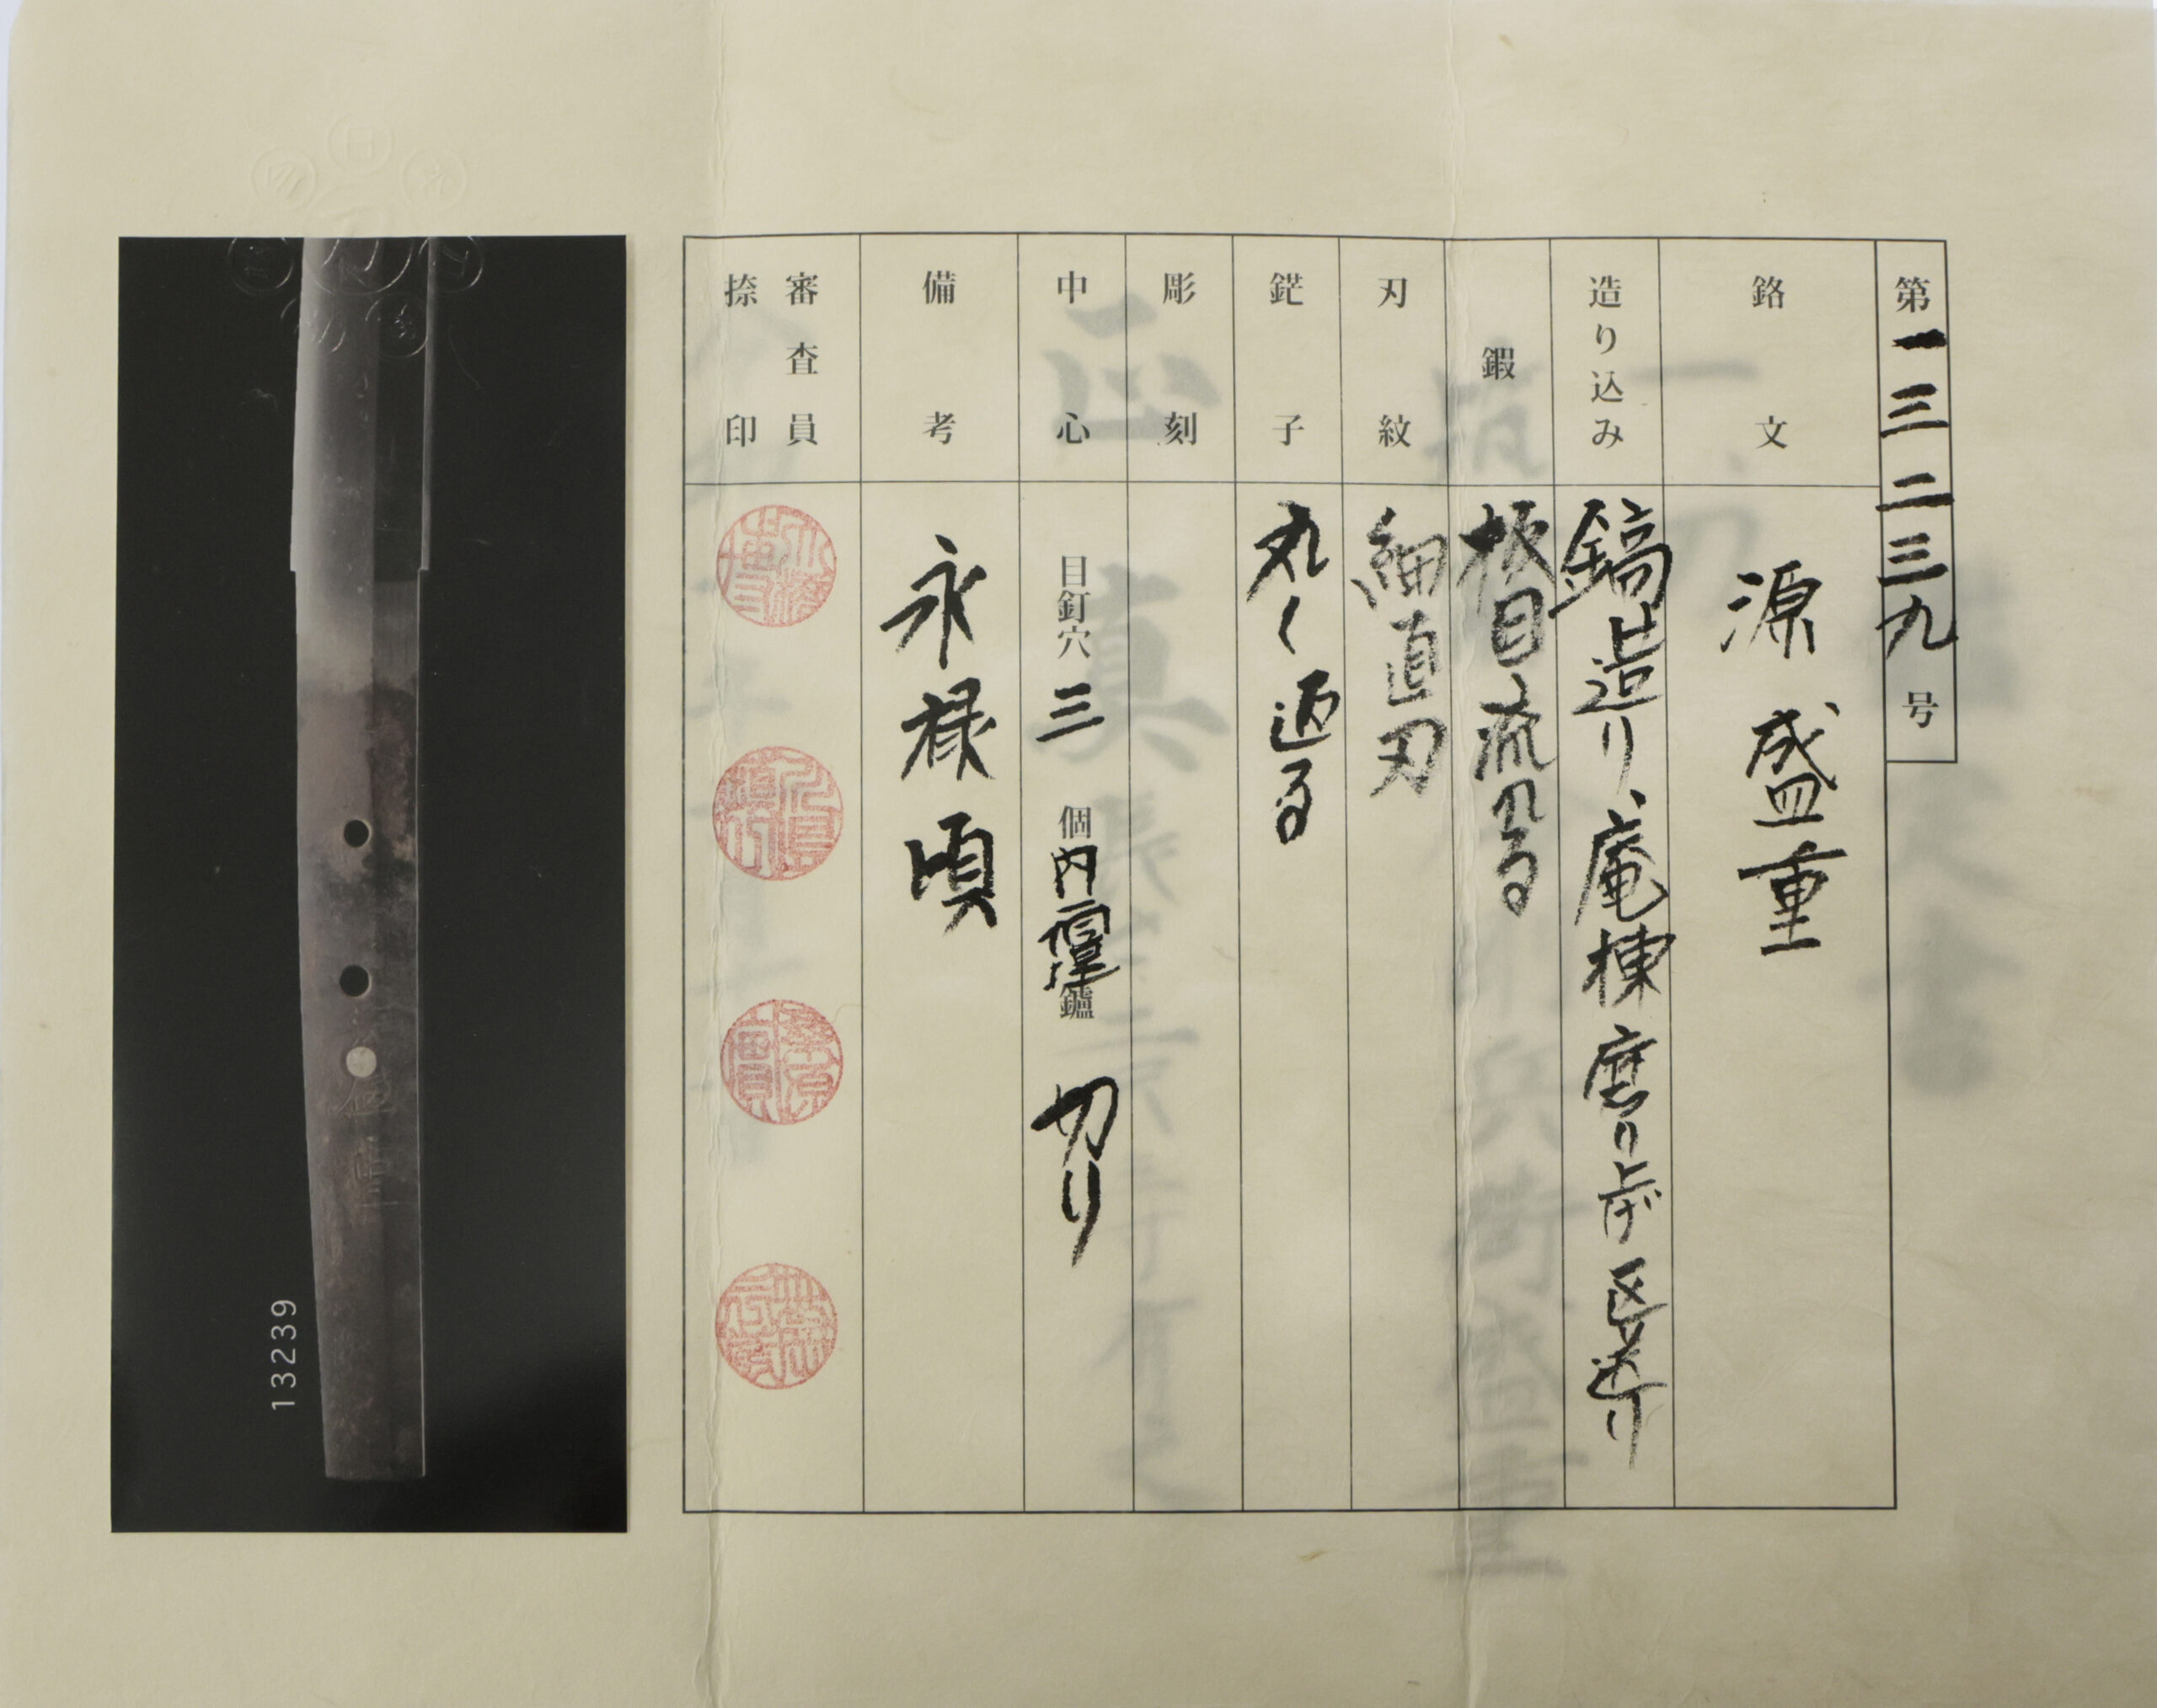 第一三二三九号
銘文 源盛重
造り込み 鎬造り、庵棟磨り上げ区送り
鍛 板目流れる
刃紋 細直刃
鋩子 丸く返る
彫刻
中心 目釘穴 三 個内 鑢 切り
備考 永禄頃
審査員
捺印
13239